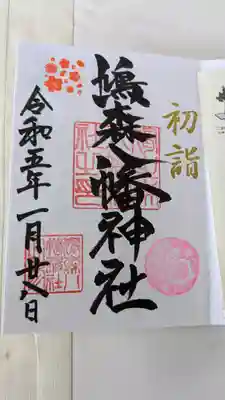 初詣
鳩森八幡神社
令和五年一月廿八日